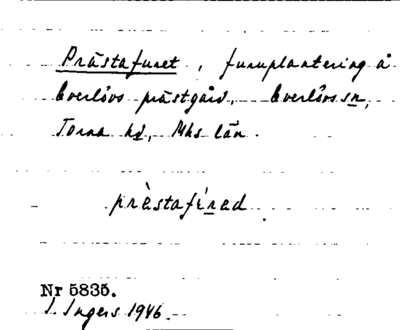 Prästafuret, furuplantering å
Everlövs prästgård, Everlövs sn,
Torna hd, Mhs län.
prèstafúrad
Nr 5835.
I. Ingers 1946.